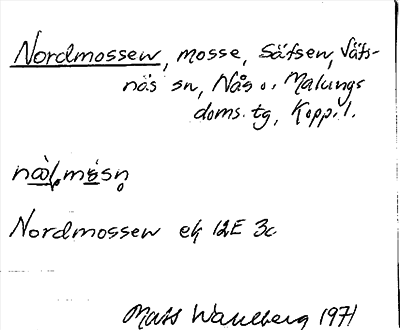 Nordmossen, mosse, Säfsen, Säfs-
näs sn, Nås o. Malungs
doms. tg, Kopp. l.
Nordmossen ek 12E 3c
Mats Wahlberg 1971